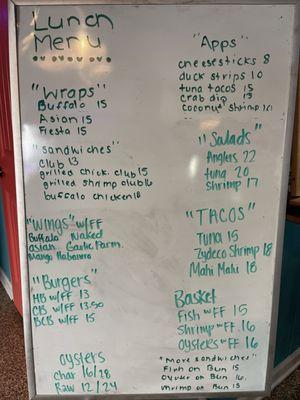 Lunch
Menu
"Wraps"
Buffalo 15
Asian 15
Fiesta 15
"Sandwiches"
Club 13
grilled chick. club 15
grilled shrimp club 16
buffalo chicken 16
"Wings" w/FF
Buffalo Naked
asian Garlic Parm.
Mango Habanero
"Burgers"
HB w/FF 13
CB w/FF 13.50
BCB w/FF 15
oysters
Char 16/28
Raw 12/24
"Apps"
cheesesticks 8
duck strips 10
tuna tacos 15
crab dip 13
coconut shrimp
"Salads"
Anglers 22
tuna 20
Shrimp 17
"TACOS"
Tuna 15
Zydeco Shrimp 18
Mahi Mahi 18
Basket
Fish w/FF 15
Shrimp w/FF 16
Oysters w/FF 16
"More sandwiches"
Fish on Bun 15
Oyster on Bun 16
Shrimp on Bun 15